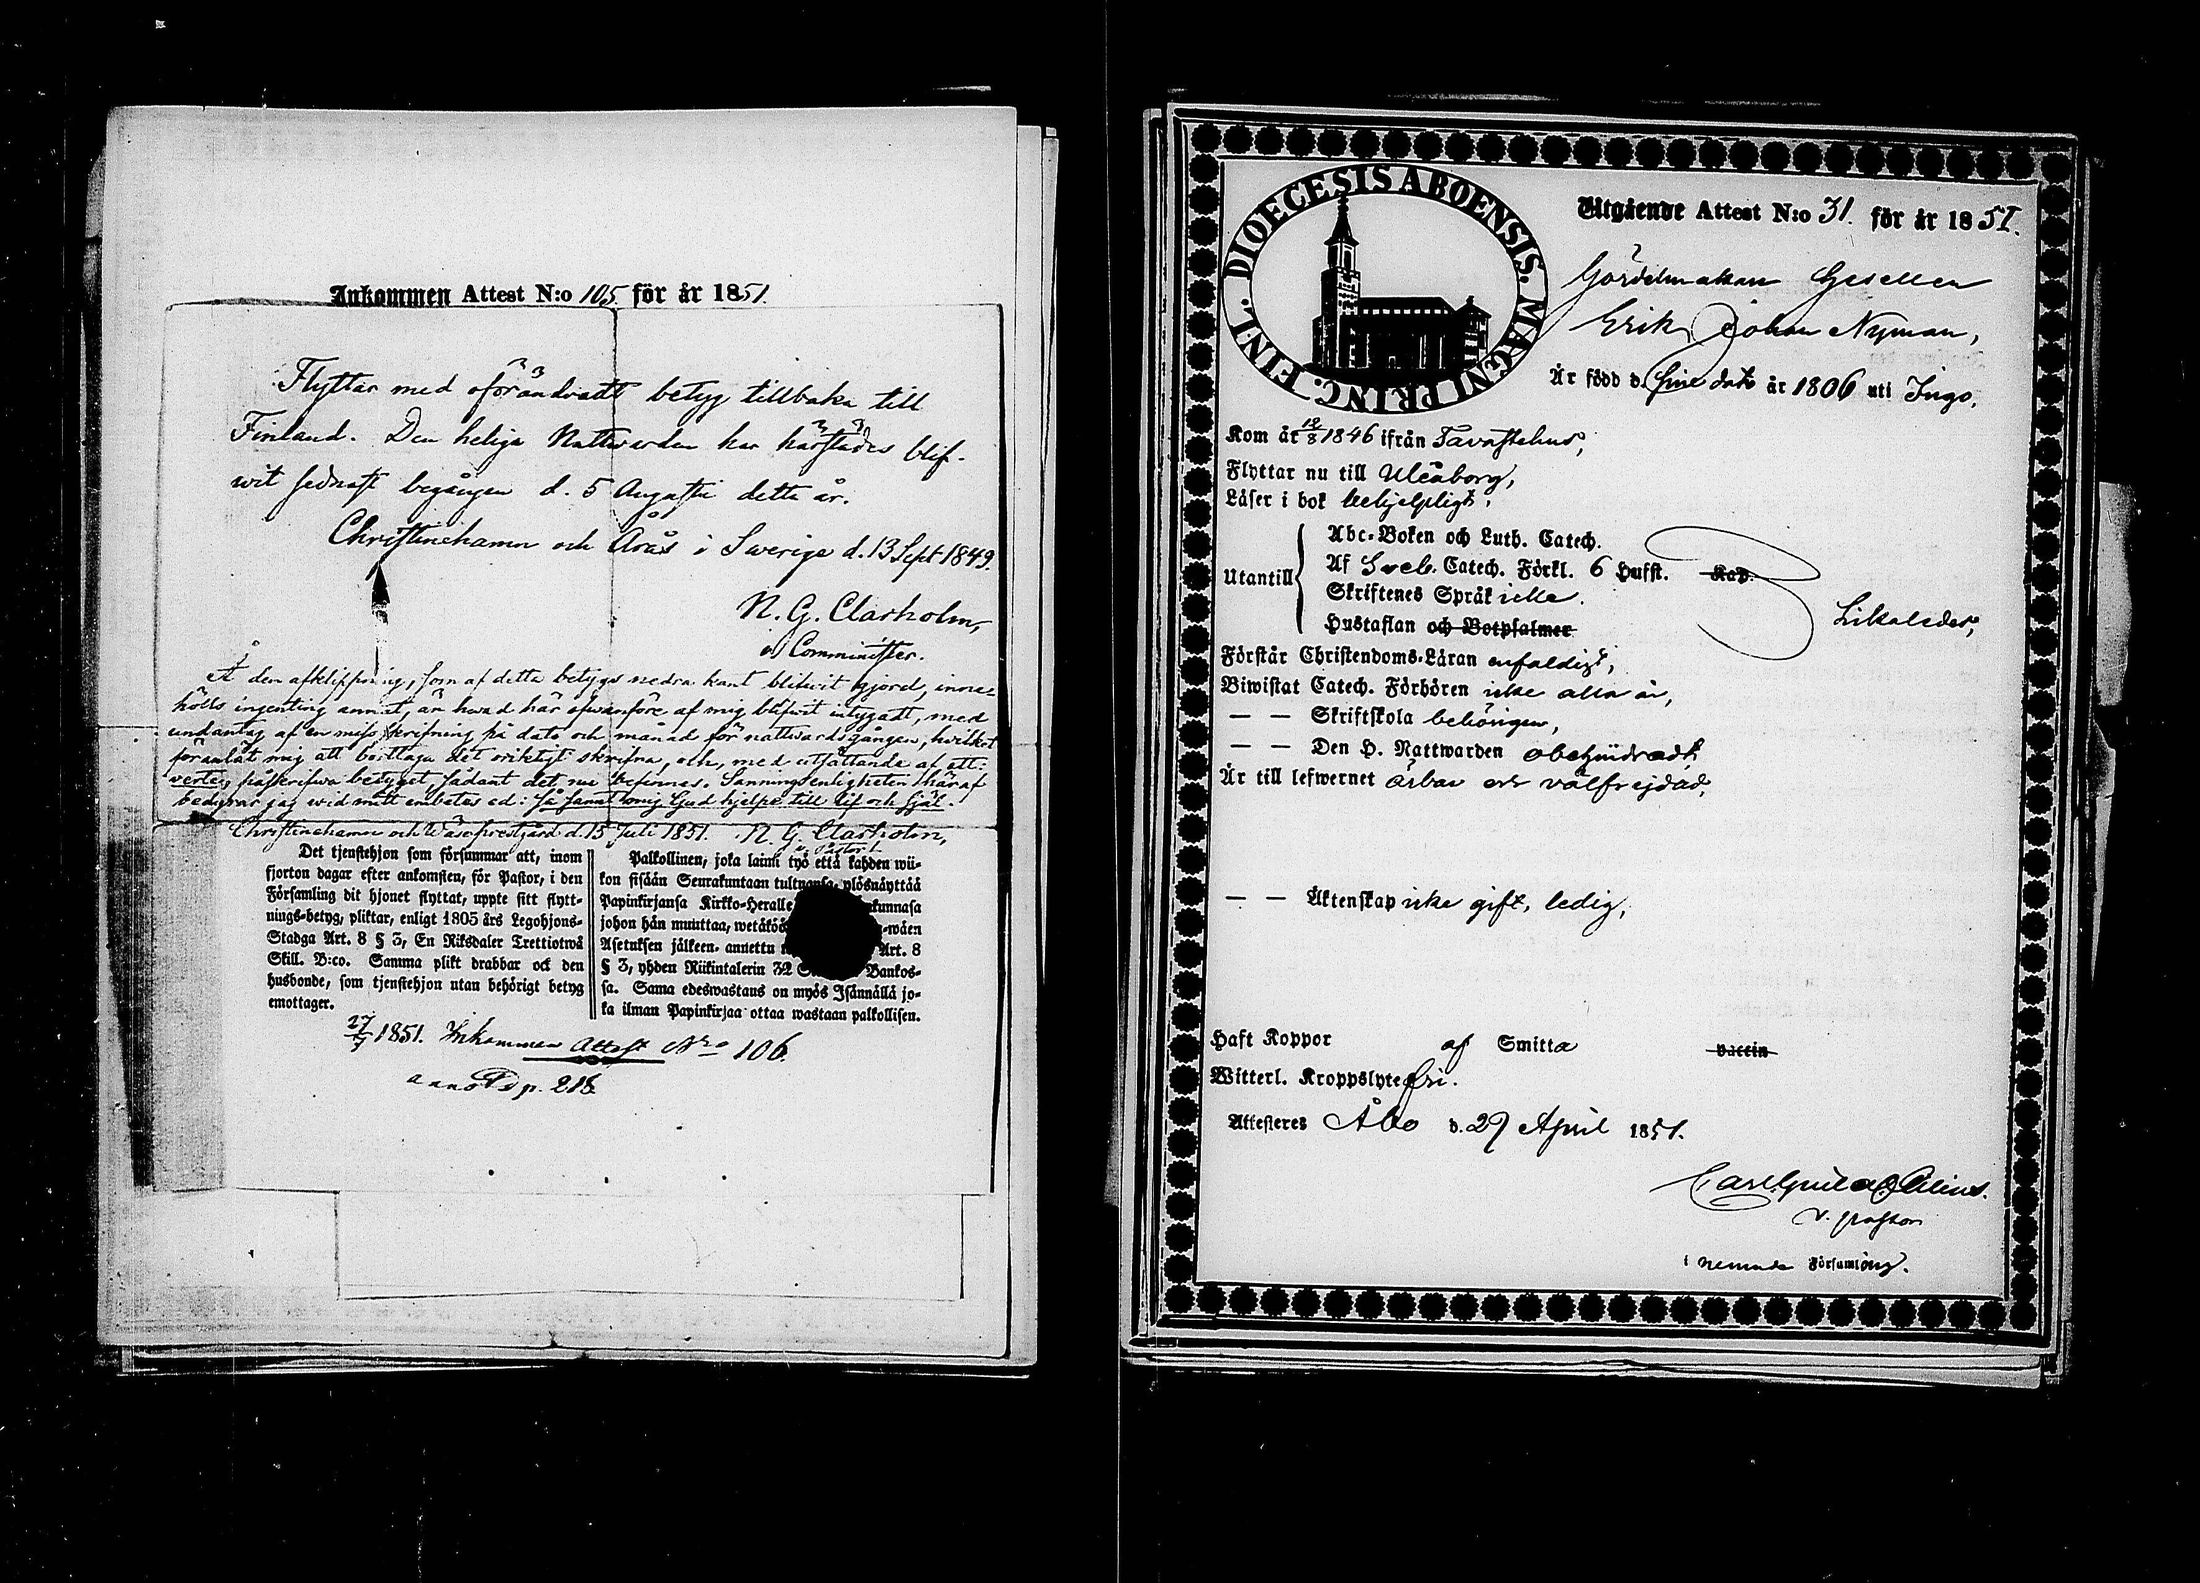 Ankommen Attest N:o 105. för år 1851.
Flyttar med oförändradt betyg tillbaka till
Finland. Den heliga Nattwarden har härstädes blif-
wit sednast begången d. 5 Augusti detta år.
Christinehamn och Årås i Swerige d. 13 Sept 1849.
N. G. Clarholm,
Comminister.
Å den afklippning, som af detta betygs nedra kant blifwit gjord, inne-
hölls ingenting annat, än hwad här ofwanföre af mig blifwit intygadt, med
undantag af en misskrifning på dato och månad för nattwardsgången, hvilket
föranlåt mig att borttaga det oriktigt skrifna, och, med utsättande af
påskrifwa betyget sådant det nu befinnes. Sanningsenligheten häraf
bedyrar jag wid mitt embetes ed: så sannt mig Gud hjelpe till lif och själ.
Christinehamn och Wäse prestgård d. 15 Juli 1851. N. G. Clarholm,
v. Pastor
Det tjenstehjon som försummar att, inom
fjorton dagar efter ankomsten, för Pastor, i den
Församling dit hjonet flyttat, uppte sitt flytt-
nings-betyg, pliktar, enligt 1805 års Legohjons-
Stadga Art. 8 § 3, En Riksdaler Trettiotwå
Skill. B:co. Samma plikt drabbar ock den
husbonde, som tjenstehjon utan behörigt betyg
emottager.
Palkollinen, joka laimi työ että kahden wii-
kon sisään Seurakuntaan tultuansa, ylösnäyttää
Papinkirjansa Kirkko-Heralle kunnasa
johon hän muuttaa, wetäköö -wäen
Asetuksen jälkeen, annettu Art. 8
§ 3, yhden Riikintalerin 32 Bankos-
sa. Sama edeswastaus on myös Isännällä jo-
ka ilman Papinkirjaa ottaa wastaan palkollisen.
27/7 1851. Inkommen Attest Nro 106.
anno p. 218.
DIOECESIS ABOENSIS. MAGNI PRINC. FINL.
Utgående Attest N:o 31. för år 1851.
Gördelmakare Gesellen
Erik Johan Nyman,
Är född d. sine dato år 1806 uti Ingo,
Kom år 12/8 1846 ifrån Tavastehus,
Flyttar nu till Uleåborg,
Läser i bok behjelpligt,
Utantill
Abc-Boken och Luth. Catech.
Af Sveb. Catech. Förkl. 6 Hufst. Kap.
Skriftenes Språk icke.
Hustaflan och Botpsalmer
Likaledes,
Förstår Christendoms-Läran enfaldigt,
Biwistat Catech. Förhören icke alla år,
— — Skriftskola behörigen,
— — Den H. Nattwarden obehindradt
Är till lefwernet ärbar och välfrejdad,
— — Äktenskap icke gift, ledig,
Haft Koppor af Smitta vaccin
Witterl. Kroppslyte fri.
Attesteres Åbo d. 29 April 1851.
v. pastor
i nemnde Församling.